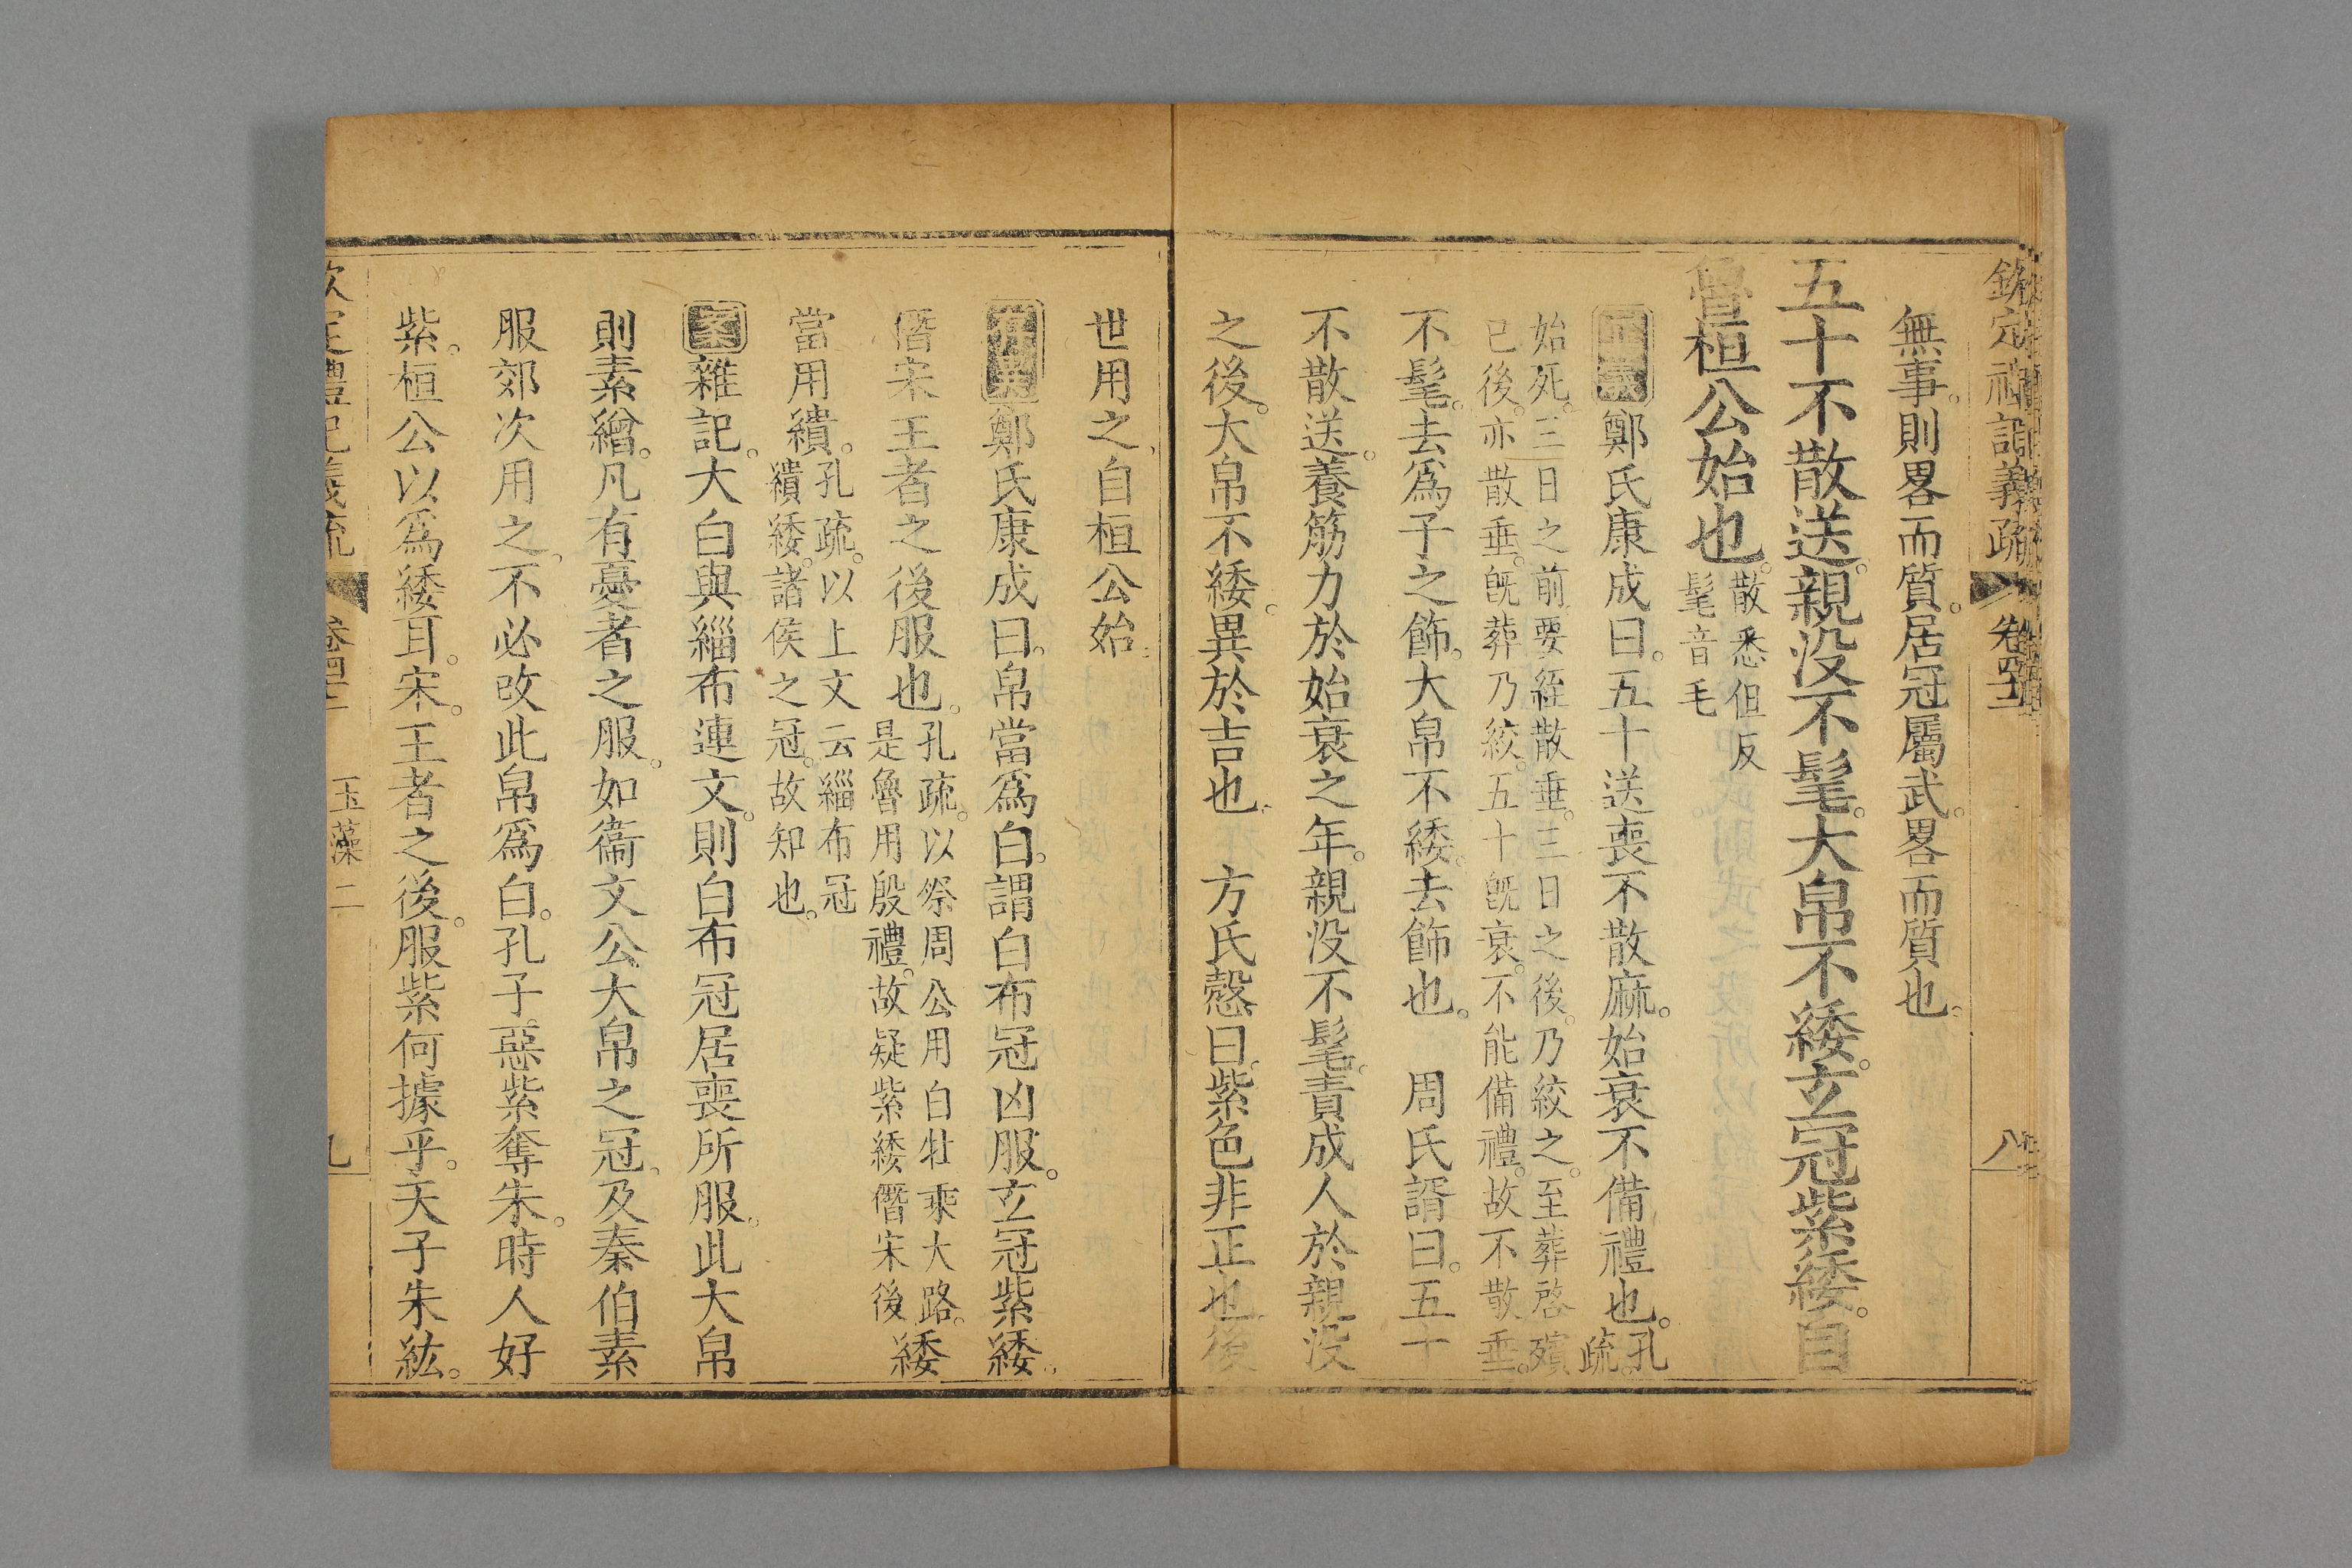 欽定禮記義疏 卷四十二 八
無事。則畧而質。居冠屬武。畧而質也。
五十不散送。親没不髦。大帛不緌。玄冠紫緌。自
魯桓公始也。散悉但反
髦音毛
正義鄭氏康成曰。五十送喪不散麻。始衰不備禮也。孔
疏。
始死。三日之前要絰散垂。三日之後。乃絞之。至葬啓殯
已後。亦散垂。旣葬乃絞。五十旣衰。不能備禮。故不散垂。
不髦。去爲子之飾。大帛不緌。去飾也。 周氏諝曰。五十
不散送。養筋力於始衰之年。親没不髦。責成人於親没
之後。大帛不緌。異於吉也。 方氏慤曰。紫色非正也。後
世用之。自桓公始。
存異鄭氏康成曰。帛當爲白。謂白布冠凶服。玄冠紫緌。
僭宋王者之後服也。孔疏。以祭周公用白牡乘大路。
是魯用殷禮。故疑紫緌僭宋後
緌
當用繢。孔疏。以上文云緇布冠
繢緌。諸侯之冠。故知也。
案雜記。大白與緇布連文。則白布冠居喪所服。此大帛
則素繒。凡有憂者之服。如衞文公大帛之冠。及秦伯素
服郊次用之。不必改此帛爲白。孔子惡紫奪朱。時人好
紫。桓公以爲緌耳。宋。王者之後。服紫何據乎。天子朱紘。
欽定禮記義疏 卷四十二 玉藻二 九